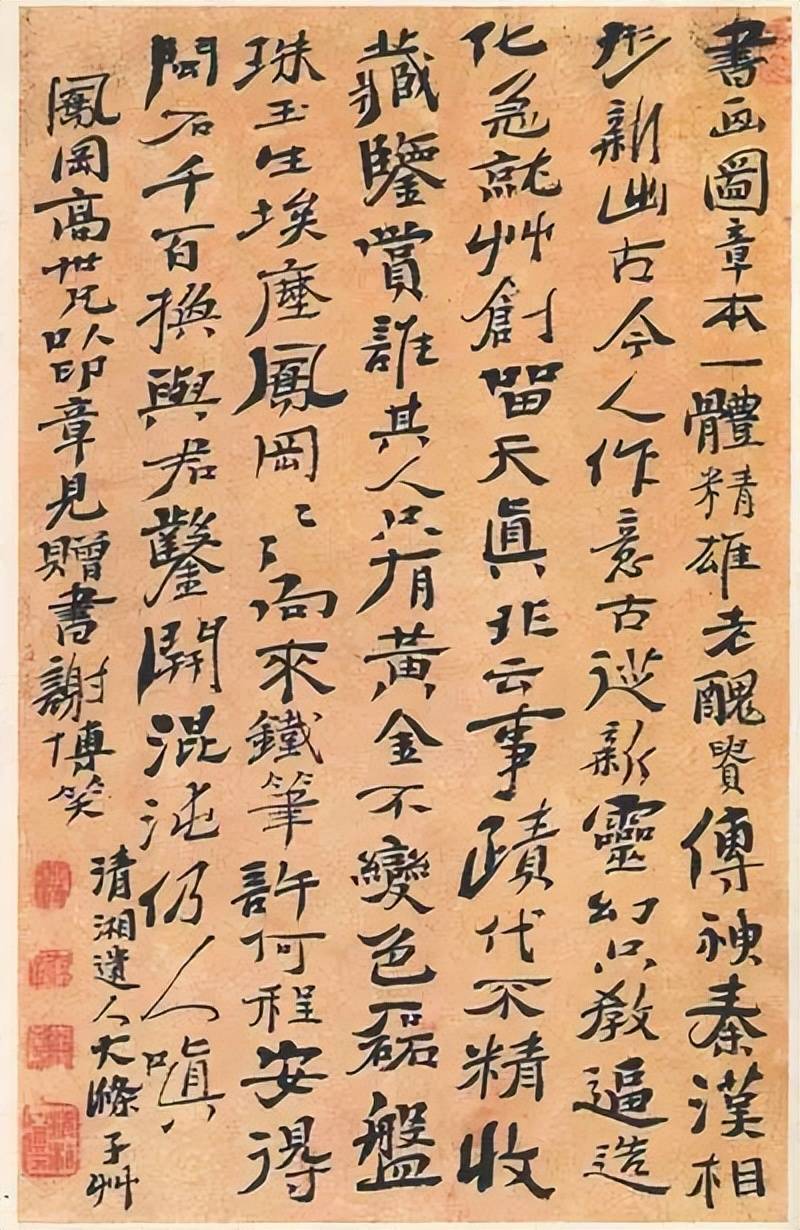 書画圖章本一體精雄老醜貴傳神秦漢相
形新出古今人作意古從新靈幻只教逼造
化急就艸創留天真非云事蹟代不精收
藏鑒賞誰其人只有黃金不變色磊盤
珠玉生埃塵鳳岡〻〻向來鐵筆許何程安得
悶石千百換與君鑿開混沌仍人嗔
鳳岡高世兄以印章見贈書謝博笑
清湘遺人大滌子艸